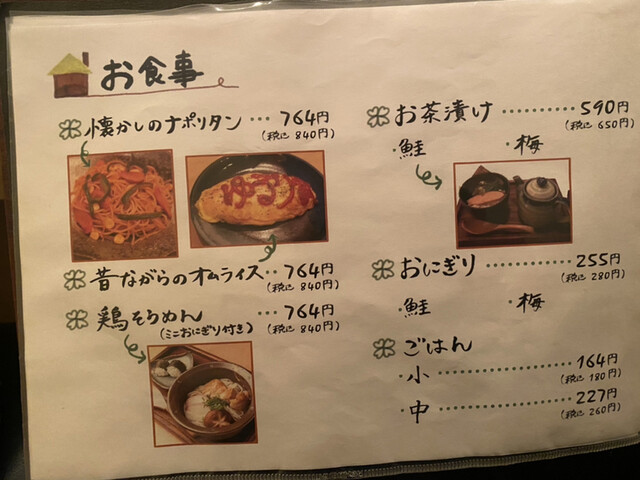 お食事
懐かしのナポリタン … 764円
(税込 840円)
昔ながらのオムライス ‥ 764円
(税込 840円)
鶏そうめん ……… 764円
(ミニおにぎり付き) (税込 840円)
お茶漬け ……… 590円
(税込 650円)
・鮭 ・梅
おにぎり ……… 255円
(税込 280円)
・鮭 ・梅
ごはん
・小 ……… 164円
(税込 180円)
・中 ……… 227円
(税込 260円)